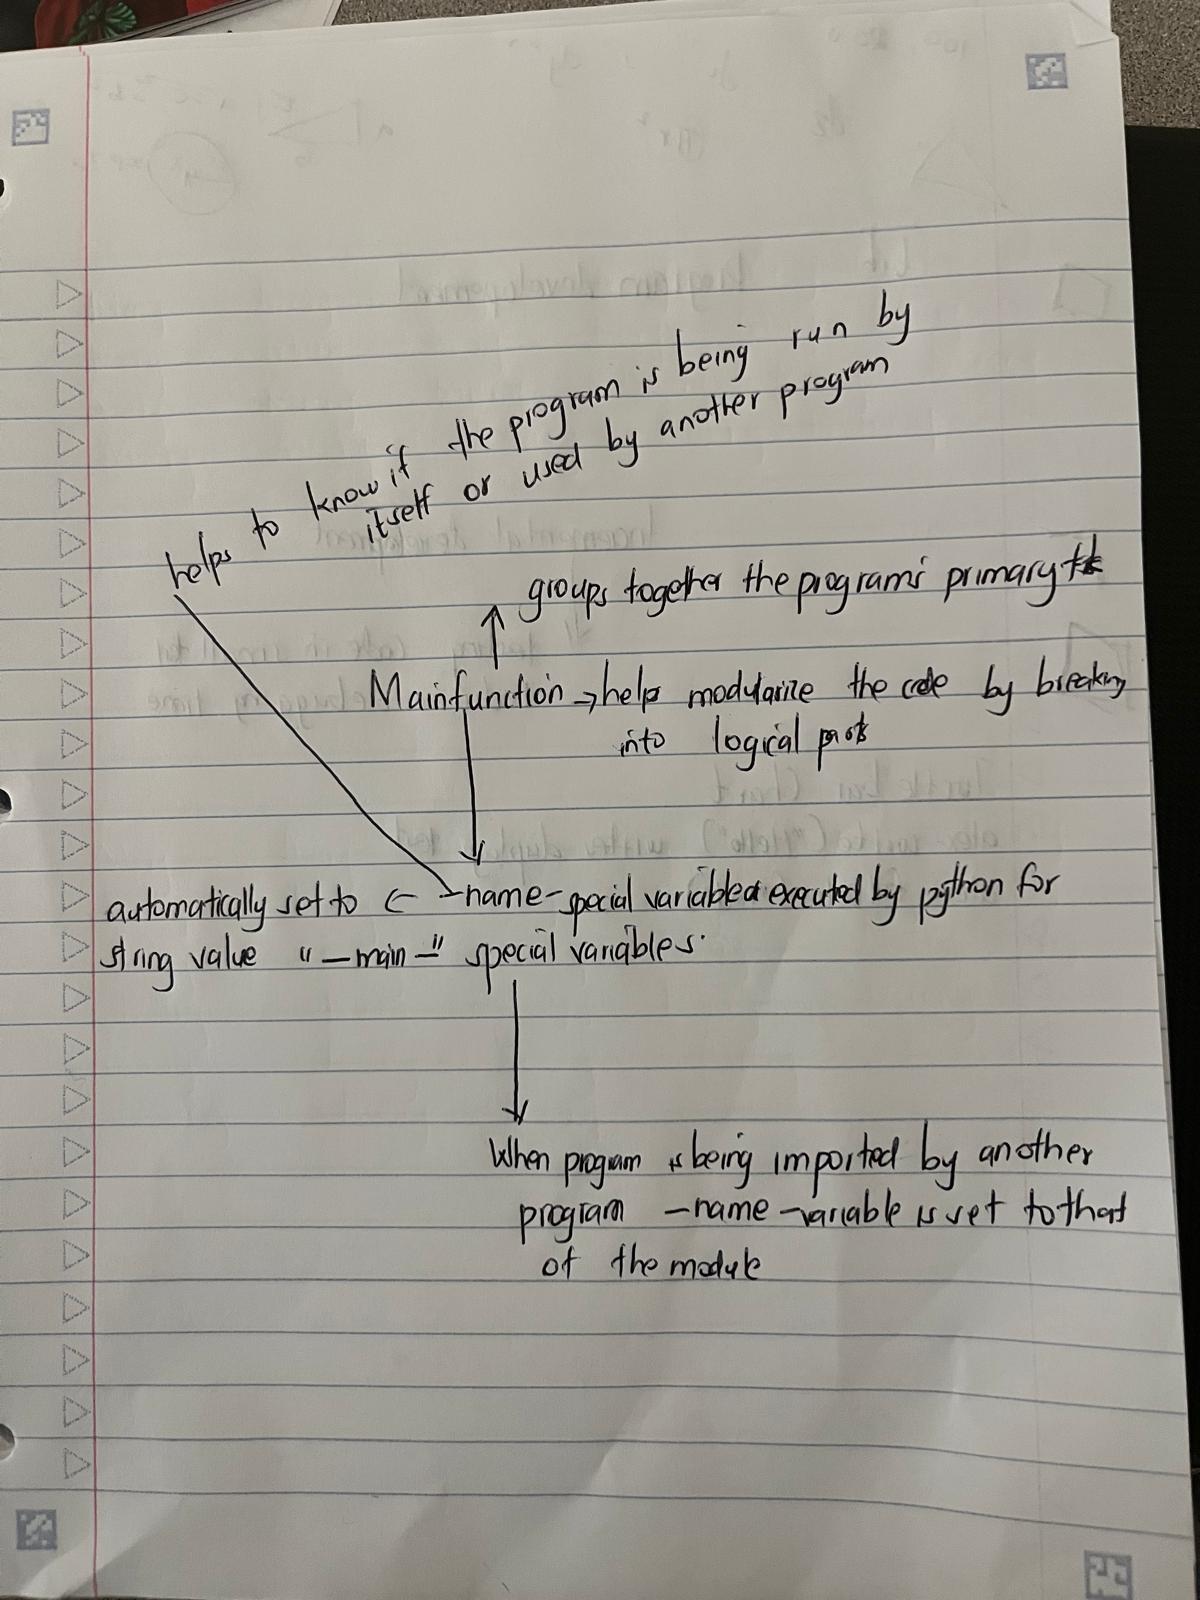 helps to know if the program is being run by
itself or used by another program
groups together the program's primary
Mainfunction → help modularize the code by breaking
into logical parts
automatically set to ← -name- special variable executed by python for
string value "-main-" special variables.
When program is being imported by another
program -name- variable is set to that
of the module